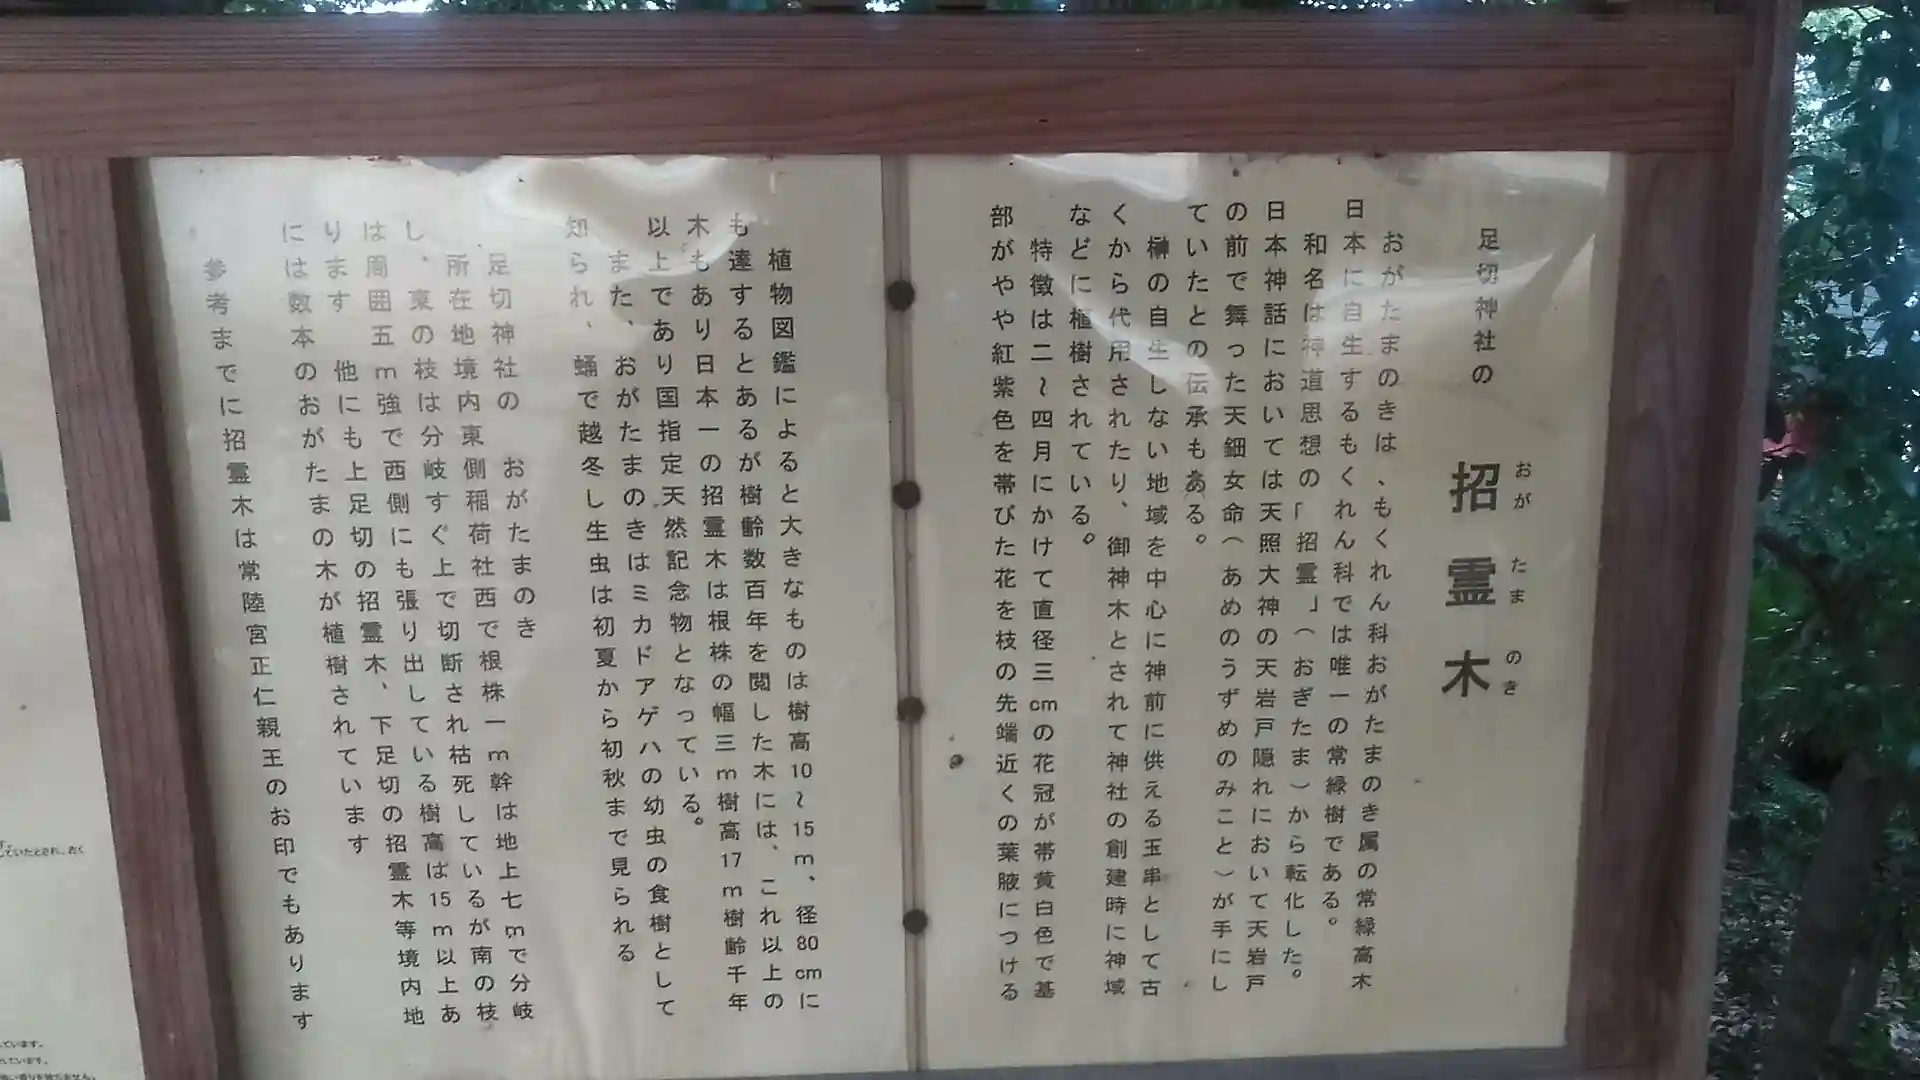 足切神社の
招霊木
おが たま のき
おがたまのきは、もくれん科おがたまのき属の常緑高木
日本に自生するもくれん科では唯一の常緑樹である。
和名は神道思想の「招霊」(おぎたま)から転化した。
日本神話においては天照大神の天岩戸隠れにおいて天岩戸
の前で舞った天鈿女命(あめのうずめのみこと)が手にし
ていたとの伝承もある。
榊の自生しない地域を中心に神前に供える玉串として古
くから代用されたり、御神木とされて神社の創建時に神域
などに植樹されている。
特徴は二~四月にかけて直径三cmの花冠が帯黄白色で基
部がやや紅紫色を帯びた花を枝の先端近くの葉腋につける
植物図鑑によると大きなものは樹高10~15m、径80cmに
も達するとあるが樹齢数百年を閲した木には、これ以上の
木もあり日本一の招霊木は根株の幅三m樹高17m樹齢千年
以上であり国指定天然記念物となっている。
また、おがたまのきはミカドアゲハの幼虫の食樹として
知られ、蛹で越冬し生虫は初夏から初秋まで見られる
足切神社の おがたまのき
所在地境内東側稲荷社西で根株一m幹は地上七mで分岐
し、東の枝は分岐すぐ上で切断され枯死しているが南の枝
は周囲五m強で西側にも張り出している樹高は15m以上あ
ります 他にも上足切の招霊木、下足切の招霊木等境内地
には数本のおがたまの木が植樹されています
参考までに招霊木は常陸宮正仁親王のお印でもあります
ていたとされ、古く
ています。
ています。